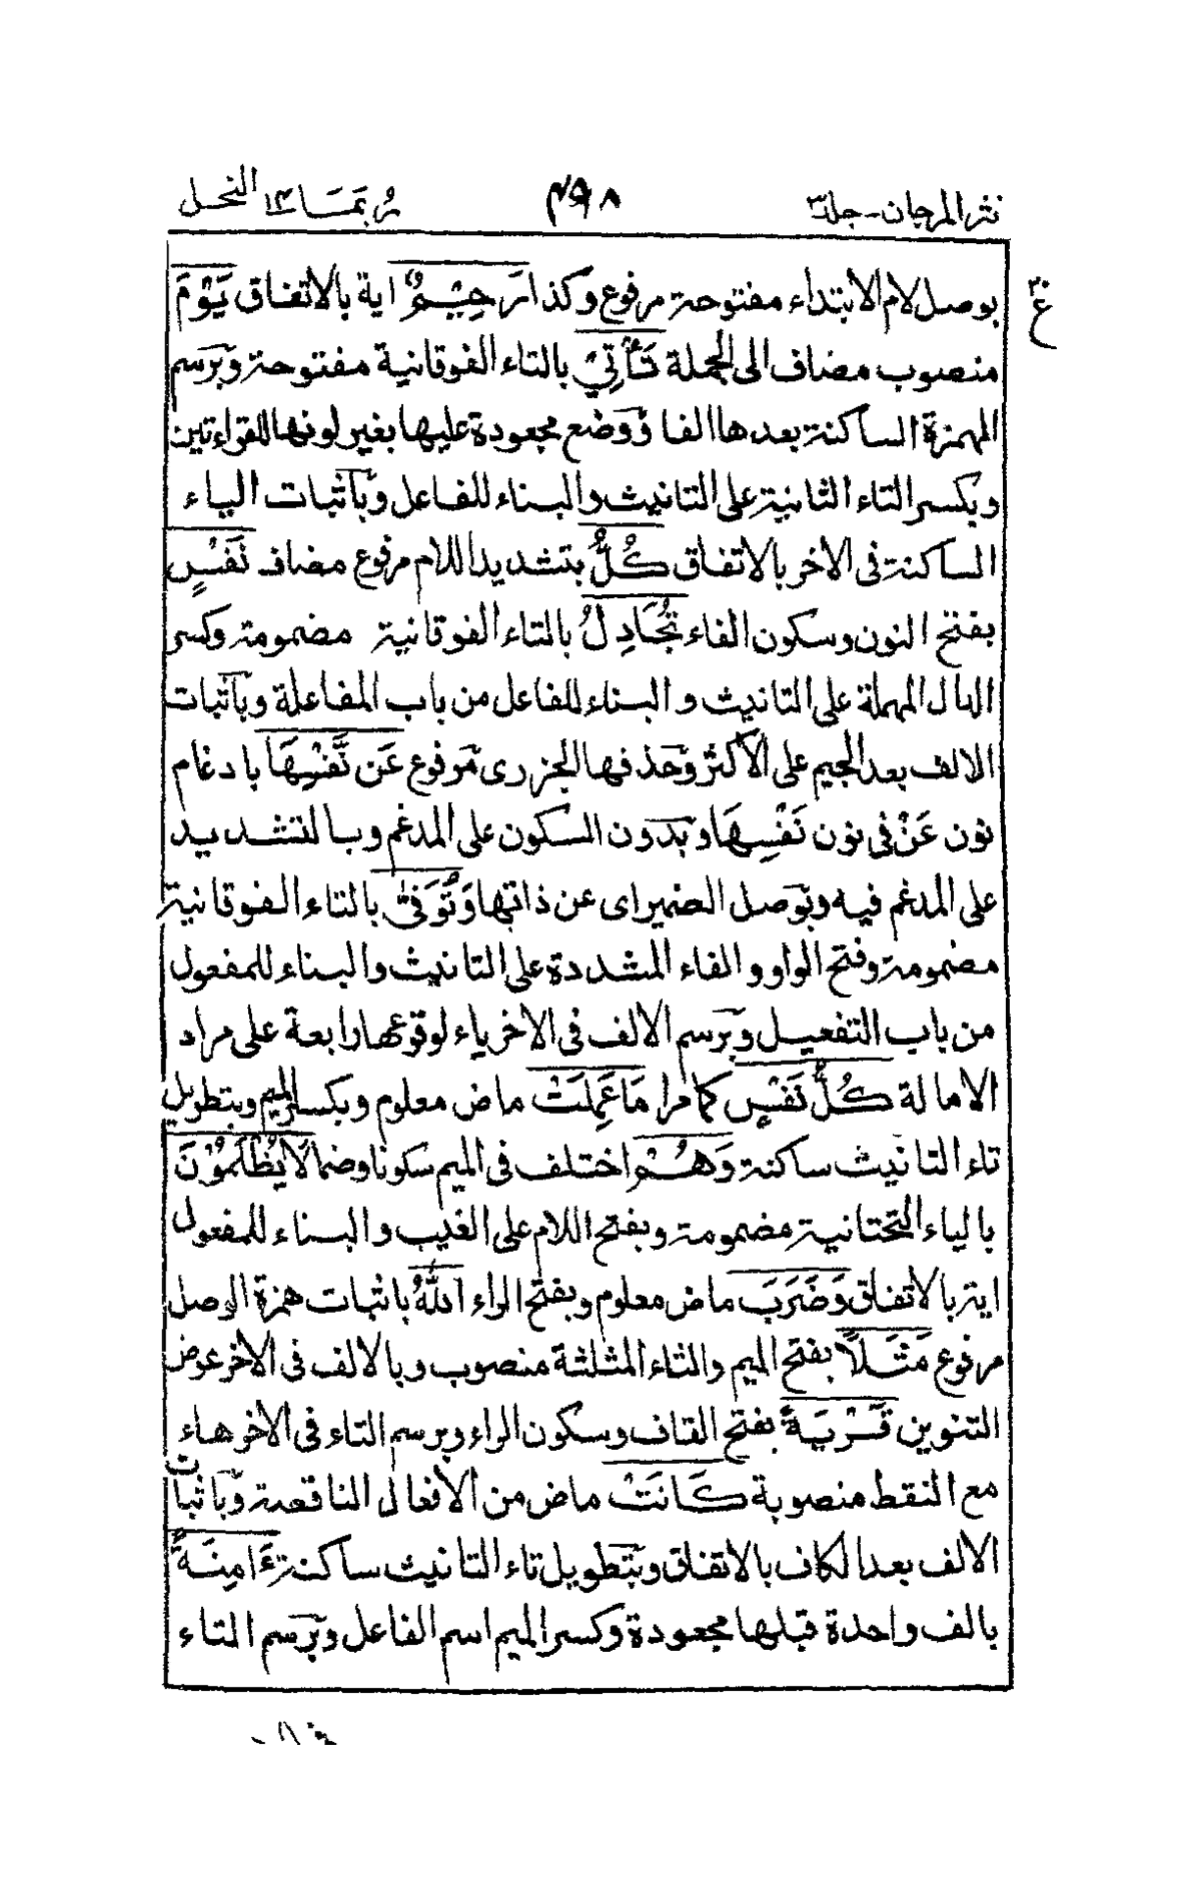 نثر المرجان - جلد ٣
٤٩٨
ربما ١٤ النحل
ع
بوصل لام الابتداء مفتوحة مرفوع وكذا رَحِيْمٌ اية بالاتفاق يَوْمَ
منصوب مضاف الى الجملة تَأْتِيْ بالتاء الفوقانية مفتوحة وبرسم
الهمزة الساكنة بعدها الفا ووضع مجعودة عليها بغير لونها للقراءتين
وبكسر التاء الثانية على التانيث والبناء للفاعل وباثبات الياء
الساكنة فى الاخر بالاتفاق كُلُّ بتشديد اللام مرفوع مضاف نَفْسٍ
بفتح النون وسكون الفاء تُجَادِلُ بالتاء الفوقانية مضمومة وكسر
الدال المهملة على التانيث والبناء للفاعل من باب المفاعلة وباثبات
الالف بعد الجيم على الاكثر وحذفها الجزرى مرفوع عَن نَّفْسِهَا بادغام
نون عَنْ فى نون نَفْسِهَا وبدون السكون على المدغم وبالتشديد
على المدغم فيه وبوصل الضمير اى عن ذاتها وَتُوَفّٰى بالتاء الفوقانية
مضمومة وفتح الواو والفاء المشددة على التانيث والبناء للمفعول
من باب التفعيل وبرسم الالف فى الاخر ياء لوقوعها رابعة على مراد
الامالة كُلُّ نَفْسٍ كما مرا مَا عَمِلَتْ ماض معلوم وبكسر الميم وبتطويل
تاء التانيث ساكنة وَهُمْ اختلف فى الميم سكونا وضما لَايُظْلَمُوْنَ
بالياء التحتانية مضمومة وبفتح اللام على الغيب والبناء للمفعول
اية بالاتفاق وَضَرَبَ ماض معلوم وبفتح الراء اللهُ باثبات همزة الوصل
مرفوع مَثَلًا بفتح الميم والثاء المثلثة منصوب وبالالف فى الاخر عوض
التنوين قَرْيَةً بفتح القاف وسكون الراء وبرسم التاء فى الاخر هاء
مع النقط منصوبة كَانَتْ ماض من الافعال الناقصة وباثبات
الالف بعد الكاف بالاتفاق وبتطويل تاء التانيث ساكنة ءَامِنَةً
بالف واحدة قبلها مجعودة وكسر الميم اسم الفاعل وبرسم التاء